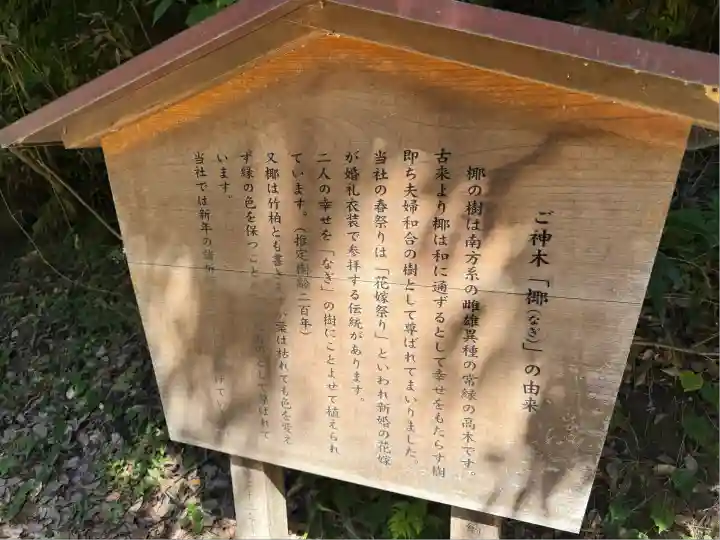 ご神木「椰(なぎ)」の由来
椰の樹は南方系の雌雄異種の常緑の高木です。
古来より椰は和に通ずるとして幸せをもたらす樹
即ち夫婦和合の樹として尊ばれてまいりました。
当社の春祭りは「花嫁祭り」といわれ新婚の花嫁
が婚礼衣装で参拝する伝統があります。
二人の幸せを「なぎ」の樹にことよせて植えられ
ています。(推定樹齢二百年)
又椰は竹柏とも書き 葉は枯れても色を変え
ず緑の色を保つこと として尊ばれて
います。
当社では新年の